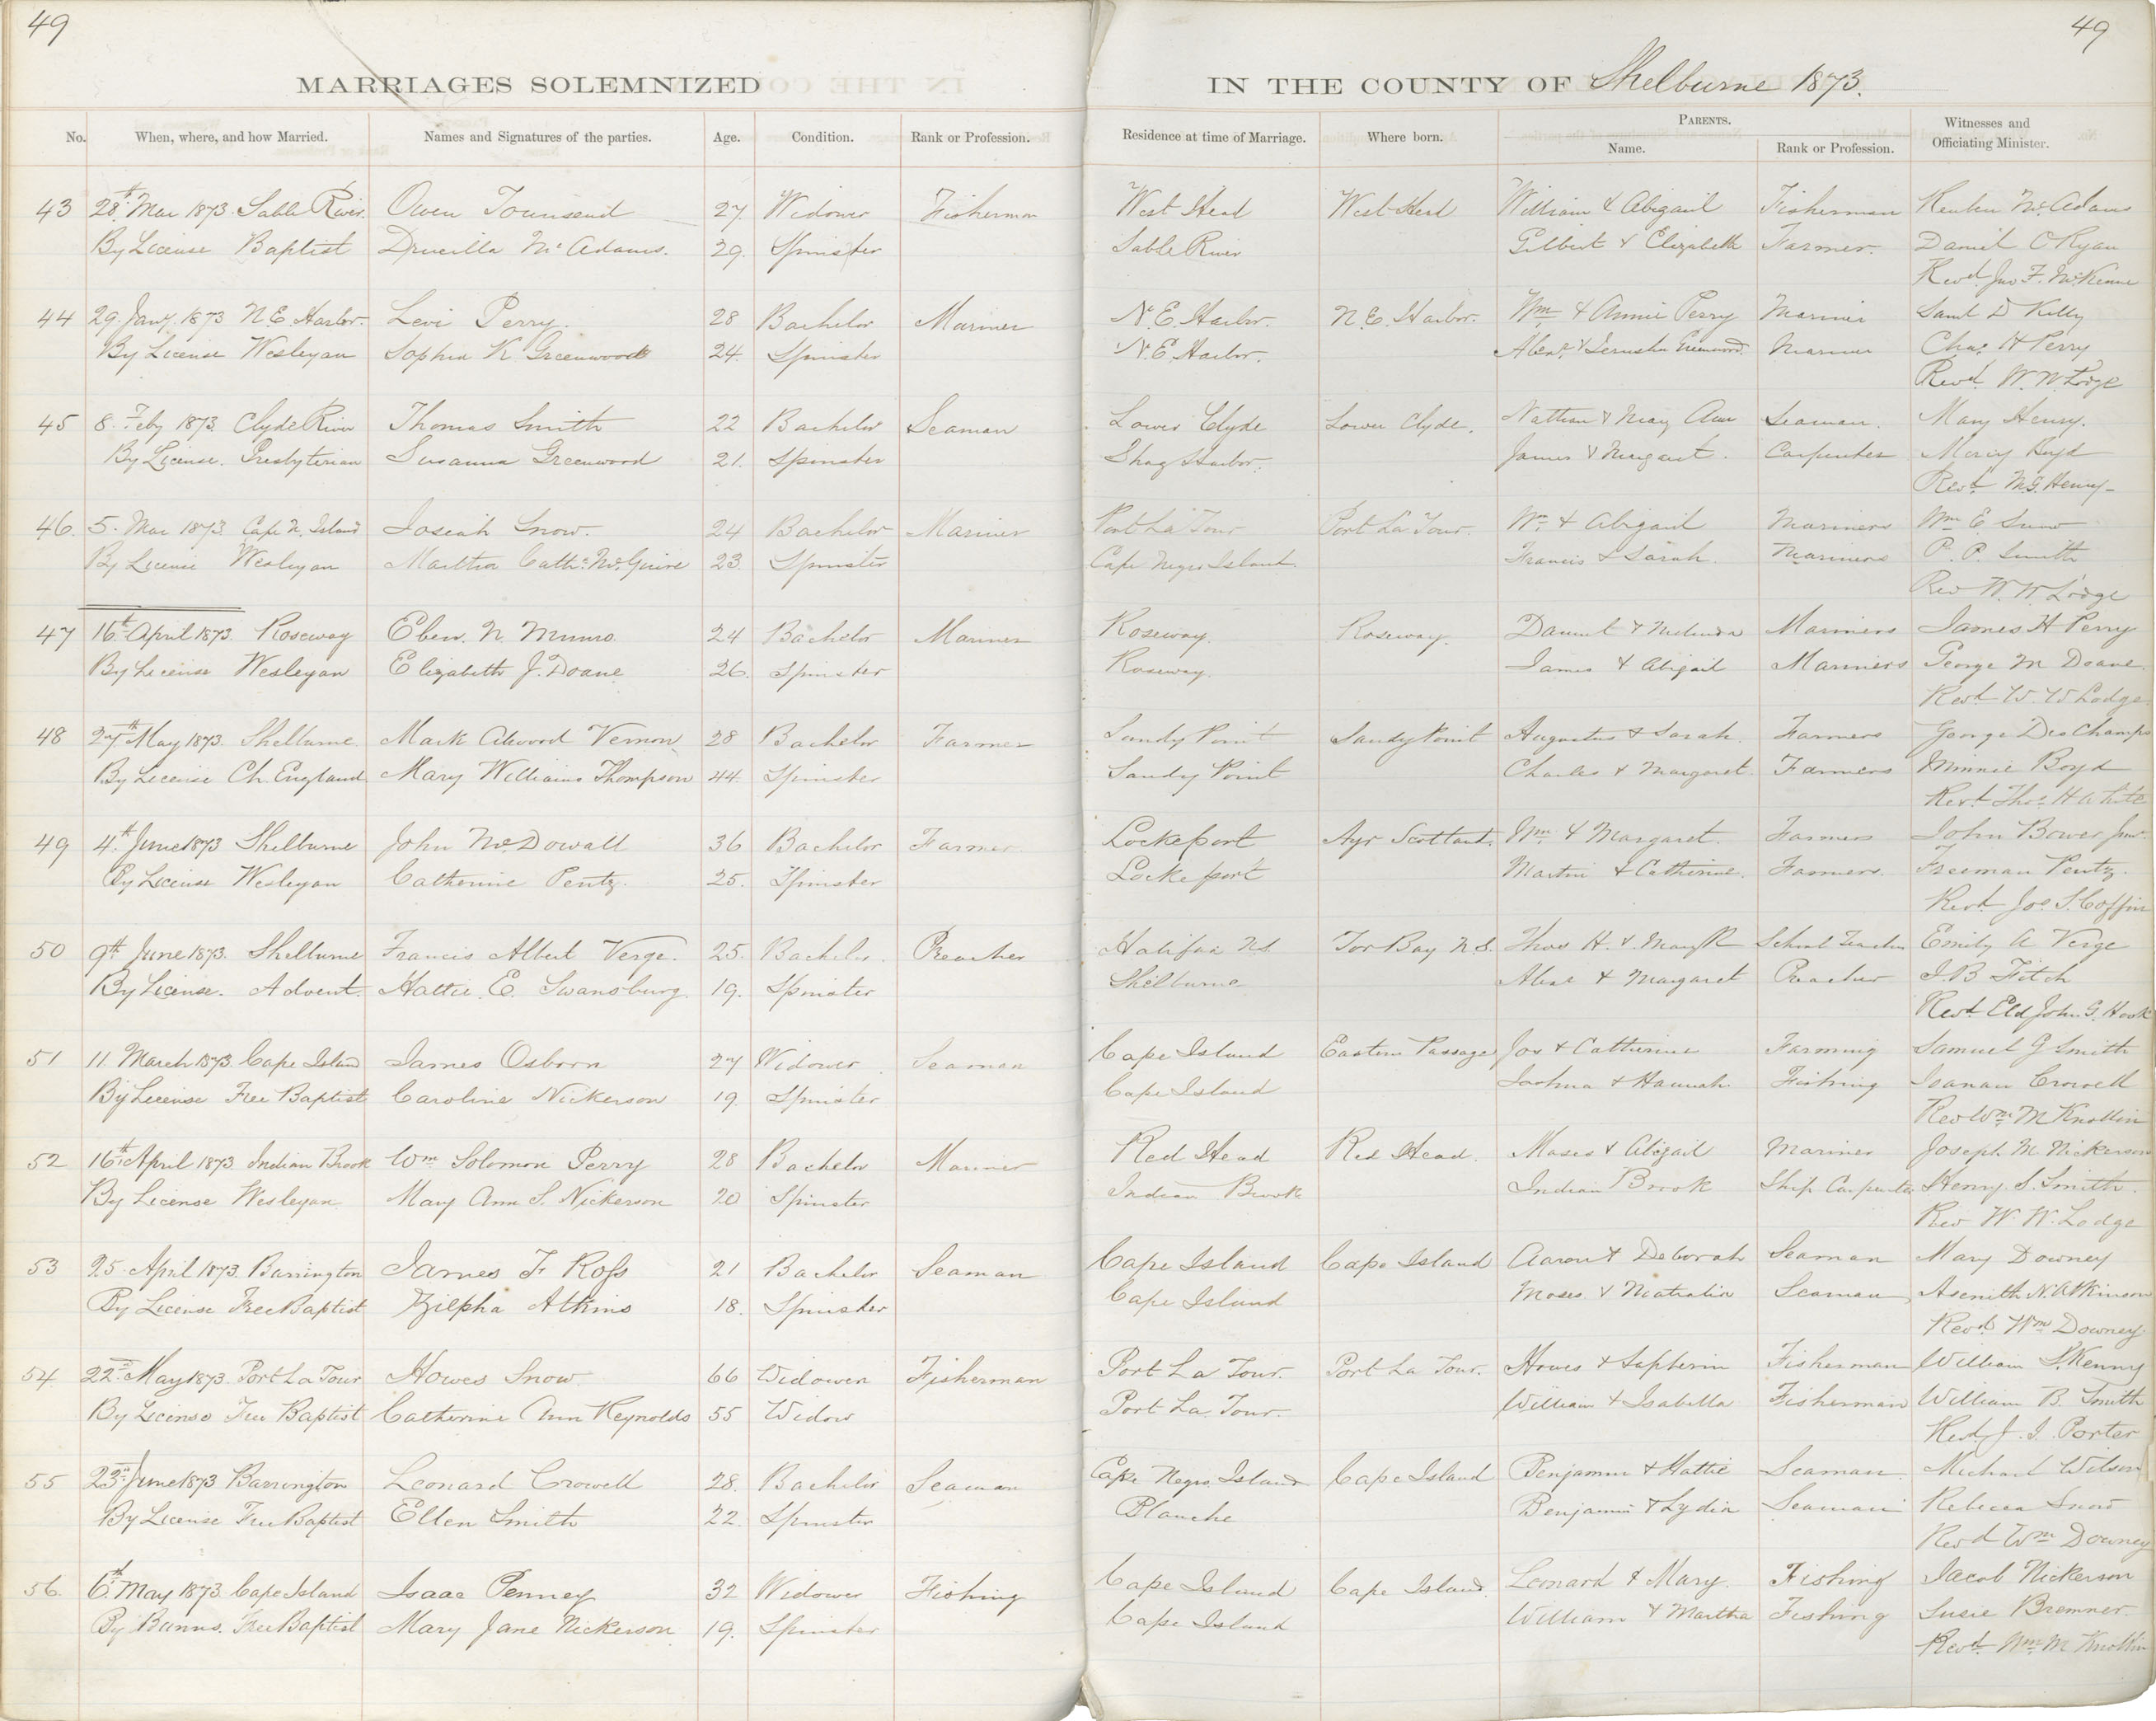 49
49
MARRIAGES SOLEMNIZED IN THE COUNTY OF Shelburne 1873.
No. When, where, and how Married. Names and Signatures of the parties. Age. Condition. Rank or Profession. Residence at time of Marriage. Where born. PARENTS. Name. Rank or Profession. Witnesses and Officiating Minister.
43 28th Mar 1873 Sable River. Owen Townsend 27 Widower Fisherman West Head West Head William & Abigail Fisherman Reuben McAdams
By License Baptist Drucilla McAdams. 29. Spinster Sable River Gilbert & Elizabeth Farmer. Daniel O Ryan
Revd. Jno F. McKenne
44 29. Jany. 1873 N.E. Harbor. Levi Perry. 28 Bachelor Mariner N.E. Harbor. N.E. Harbor. Wm & Annie Perry Mariner Saml D Kelly
By License Wesleyan Sophia K. Greenwood 24. Spinster N.E. Harbor. & Jerusha Greenwood. Mariner Chas. H Perry
Revd. W. W. Lodge
45 8. Feby 1873. Clyde River Thomas Smith 22 Bachelor Seaman Lower Clyde Lower Clyde. Nathan & Mary Ann Seaman. Mary Henry.
By License. Presbyterian Susanna Greenwood 21. Spinster Shag Harbor. James & Margaret. Carpenter Mercy Boyd
Revd. M.G. Henry
46. 5. Mar 1873 Cape N. Island Josiah Snow. 24 Bachelor Mariner Port La Tour Port La Tour. Wm & Abigail Mariners Wm E. Snow
By License Wesleyan Martha Cathe. McGuire 23. Spinster Cape Negro Island. Francis & Sarah. Mariners P. P. Smith
Rev W. W. Lodge
47 16th April 1873. Roseway Eben. N Munro. 24 Bachelor Mariner Roseway. Roseway. Daniel & Melinda Mariners James H Perry
By License Wesleyan Elizabeth J. Doane 26. Spinster Roseway. James & Abigail Mariners George M Doane.
Revd. W. W Lodge.
48 27th May 1873. Shelburne Mark Atwood Vernon 28 Bachelor Farmer Sandy Point Sandy Point Augustus & Sarah. Farmers George DesChamps
By License Ch. England Mary Williams Thompson 44. Spinster Sandy Point Charles & Margaret. Farmers Minnie Boyd
Revd. Thos. H White
49 4th June 1873 Shelburne John McDowall 36 Bachelor Farmer Lockeport Ayr Scotland. Wm & Margaret. Farmers John Bower Junr.
By License Wesleyan Catherine Pentz. 25. Spinster Lockeport Martin & Catherine. Farmers. Freeman Pentz.
Revd. Jos. S. Coffin
50 9th June 1873. Shelburne Francis Albert Verge. 25. Bachelor. Preacher Halifax N.S. Tor Bay N.S. Thos H. & Mary R School Teacher Emily A Verge
By License. Advent. Hattie. E. Swansburg. 19. Spinster Shelburne & Margaret Preacher I. B Fitch
Revd. Eld John G. Hook
51 11. March 1873. Cape Island James Osborn 27 Widower Seaman Cape Island Eastern Passage Jos & Catherine Farming Samuel G Smith
By License Free Baptist Caroline Nickerson 19. Spinster Cape Island Joshua & Hannah Fishing Crowell
Rev Wm. M Knollin
52 16th April 1873. Indian Brook Wm Solomon Perry 28 Bachelor Mariner Red Head Red Head. Moses & Abigail Mariner Joseph M Nickerson
By License Wesleyan. Mary Ann S. Nickerson 20 Spinster Indian Brook Indian Brook Ship Carpenter Henry S. Smith.
Rev W. W. Lodge
53 25. April 1873. Barrington James F Ross 21 Bachelor Seaman Cape Island Cape Island Aaron & Deborah Seaman Mary Downey
By License Free Baptist Zilpha Atkins 18. Spinster Cape Island Moses & Seaman Asenith N. Atkinson
Revd. Wm Downey
54 22nd May 1873. Port La Tour Howes Snow 66 Widower Fisherman Port La Tour. Port La Tour. Howes & Fisherman William S. Kenny
By License Free Baptist Catherine Ann Reynolds 55 Widow Port La Tour. William & Isabella Fisherman William B. Smith
Revd. J. I. Porter
55 23rd June 1873 Barrington Leonard Crowell 28. Bachelor Seaman Cape Negro Island Cape Island Benjamin & Hattie Seaman. Michael Wilson
By License Free Baptist Ellen Smith 22. Spinster Blanche Benjamin & Lydia Seaman Rebecca Snow
Revd Wm Downey
56. 6th May 1873. Cape Island Isaac Penney 32 Widower Fishing Cape Island Cape Island Leonard & Mary. Fishing Jacob Nickerson
By Banns. Free Baptist Mary Jane Nickerson 19. Spinster Cape Island William & Martha Fishing Susie Bremner.
Revd. Wm. M Knollin